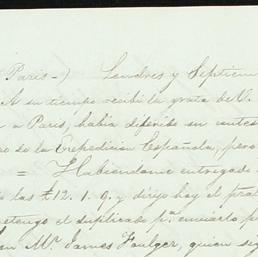 Paris-) Londres y Septiem
A su tiempo recibi la grata de V.
a Paris, habia diferido su contes
de la Expedicion Española, pero
= Habiendome entregado
las £12. 1. 9. y dirijo hoy el
retengo el duplicado pa. enviarlo p
Mr. James Foulger, quien se